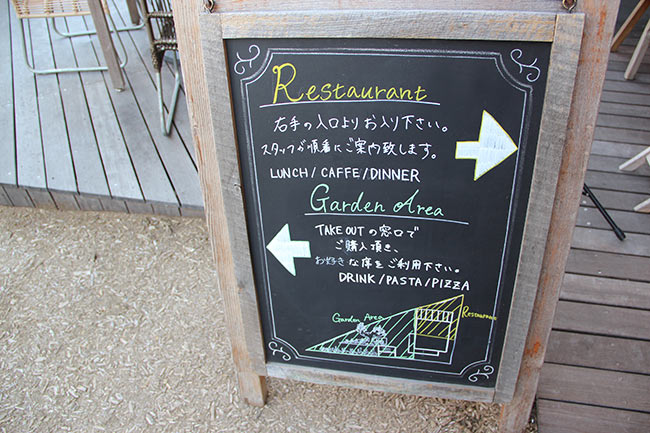 Restaurant
右手の入口よりお入り下さい。
スタッフが順番にご案内致します。
LUNCH/CAFFE/DINNER
Garden Area
TAKE OUTの窓口で
ご購入頂き、
お好きな席をご利用下さい。
DRINK/PASTA/PIZZA
Garden Area
Restaurant